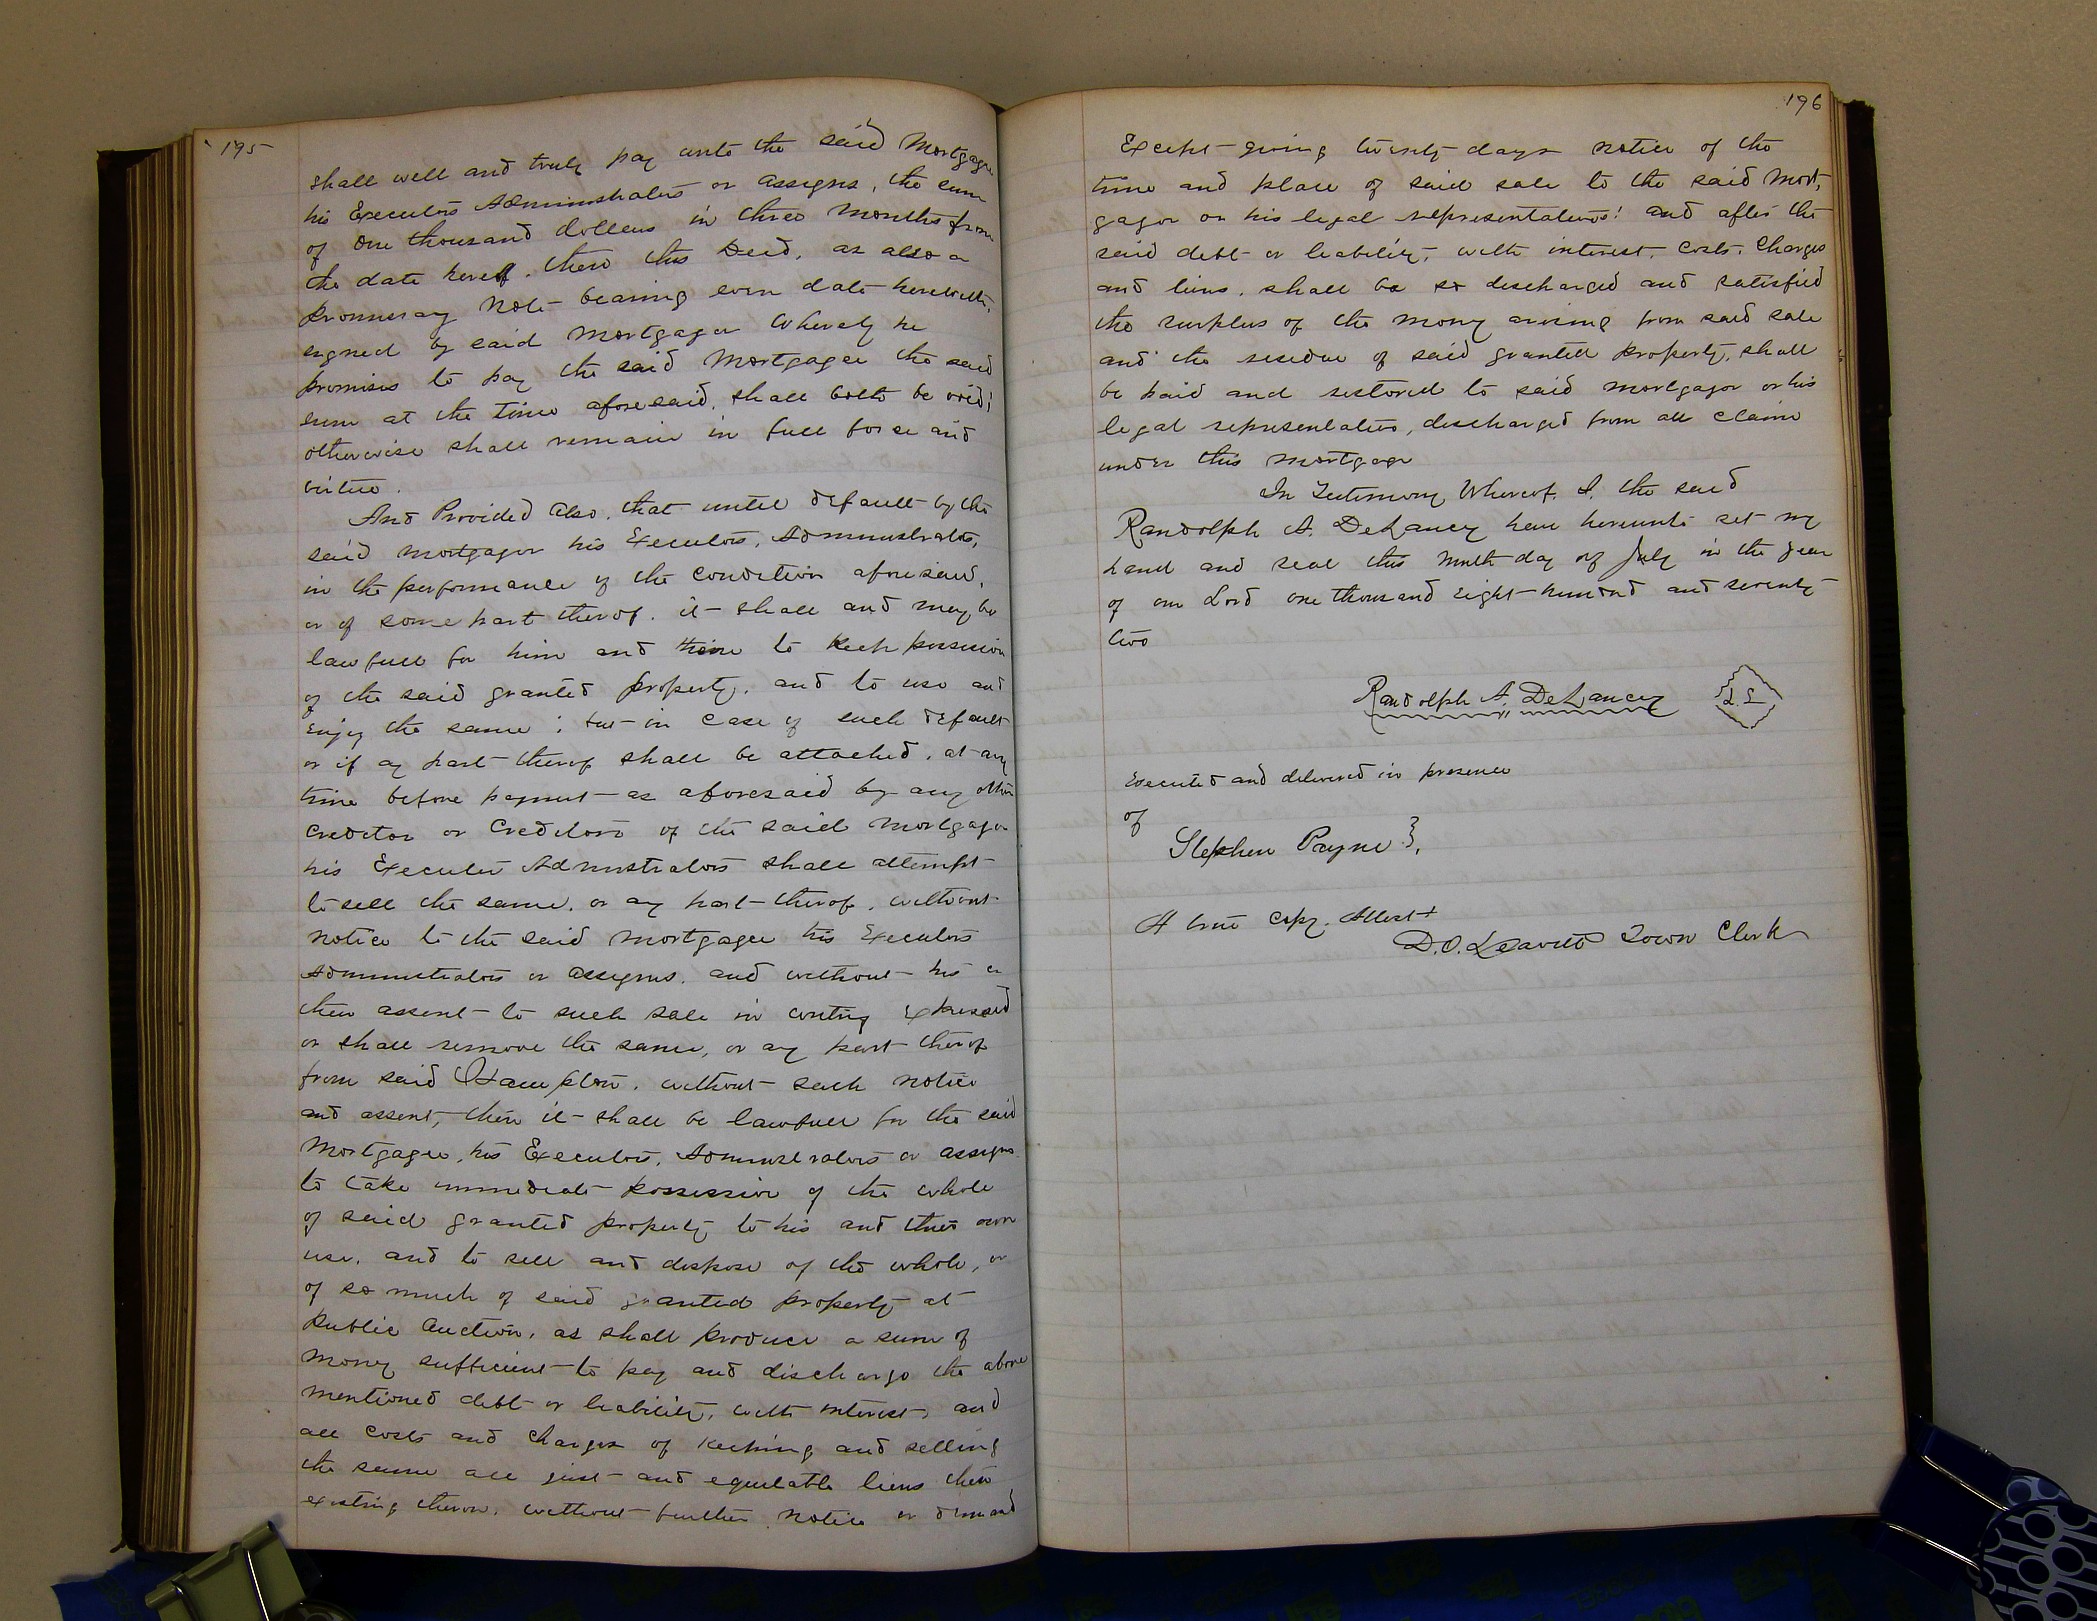 195
shall well and truly pay unto the said Mortgagee
his Executors Administrators or assigns, the sum
of one thousand dollars in three months from
the date hereof. then this Deed, as also a
promissary note bearing even date herewith,
signed by said Mortgagor whereby he
promises to pay the said Mortgagee the said
sum at the time aforesaid, shall both be void;
otherwise shall remain in full force and
virtue.
And Provided also, that until default by the
said mortgagor his Executors, Administrators,
in the performance of the condition aforesaid,
or of some part therof. it shall and may be
lawfull for him and them to keep possession
of the said granted property, and to use and
enjoy the same; but in case of such default
or if any part therof shall be attached, at any
time before payment as aforesaid by any other
creditor or creditors of the said Mortgagor
his Executor Admnistrators shall attempt
to sell the same, or any part therof, without
notice to the said mortgagee his Executors
Administrators or assigns, and without his or
their assent to such sale in writing expressed
or shall remove the same, or any part therof
from said Hampton, without such notice
and assent, then it shall be lawfull for the said
Mortgagee, his Executors, Administrators or assigns
to take immediate possession of the whole
of said granted property to his and their own
use, and to sell and dispose of the whole, or
of so much of said granted property at
public auction, as shall produce a sum of
money sufficient to pay and discharge the above
mentioned debt or liability, with interest, and
all costs and charges of keeping and selling
the same all just and equitable liens then
existing theron, without further notice or demand
196
Except giving twenty days notice of the
time and place of said sale to the said Mort,
gagor or his legal representatives: and after the
said debt or liability, with interest, costs, charges
and liens, shall be so discharged and satisfied
the surplus of the money arising from said sale
and the residue of said granted property, shall
be paid and restored to said mortgagor or his
legal representatives, discharged from all claim
under this mortgage
In Testimony Whereof I, the said
Randolph A. DeLancey have hereunto set my
hand and seal this ninth day of July in the year
of our Lord one thousand eight hundred and seventy
two
Randolph A. DeLancey L.S.
Executed and delivered in presence
of
Stephen Payne }.
A true copy. Attest
D.O. Leavitt Town Clerk